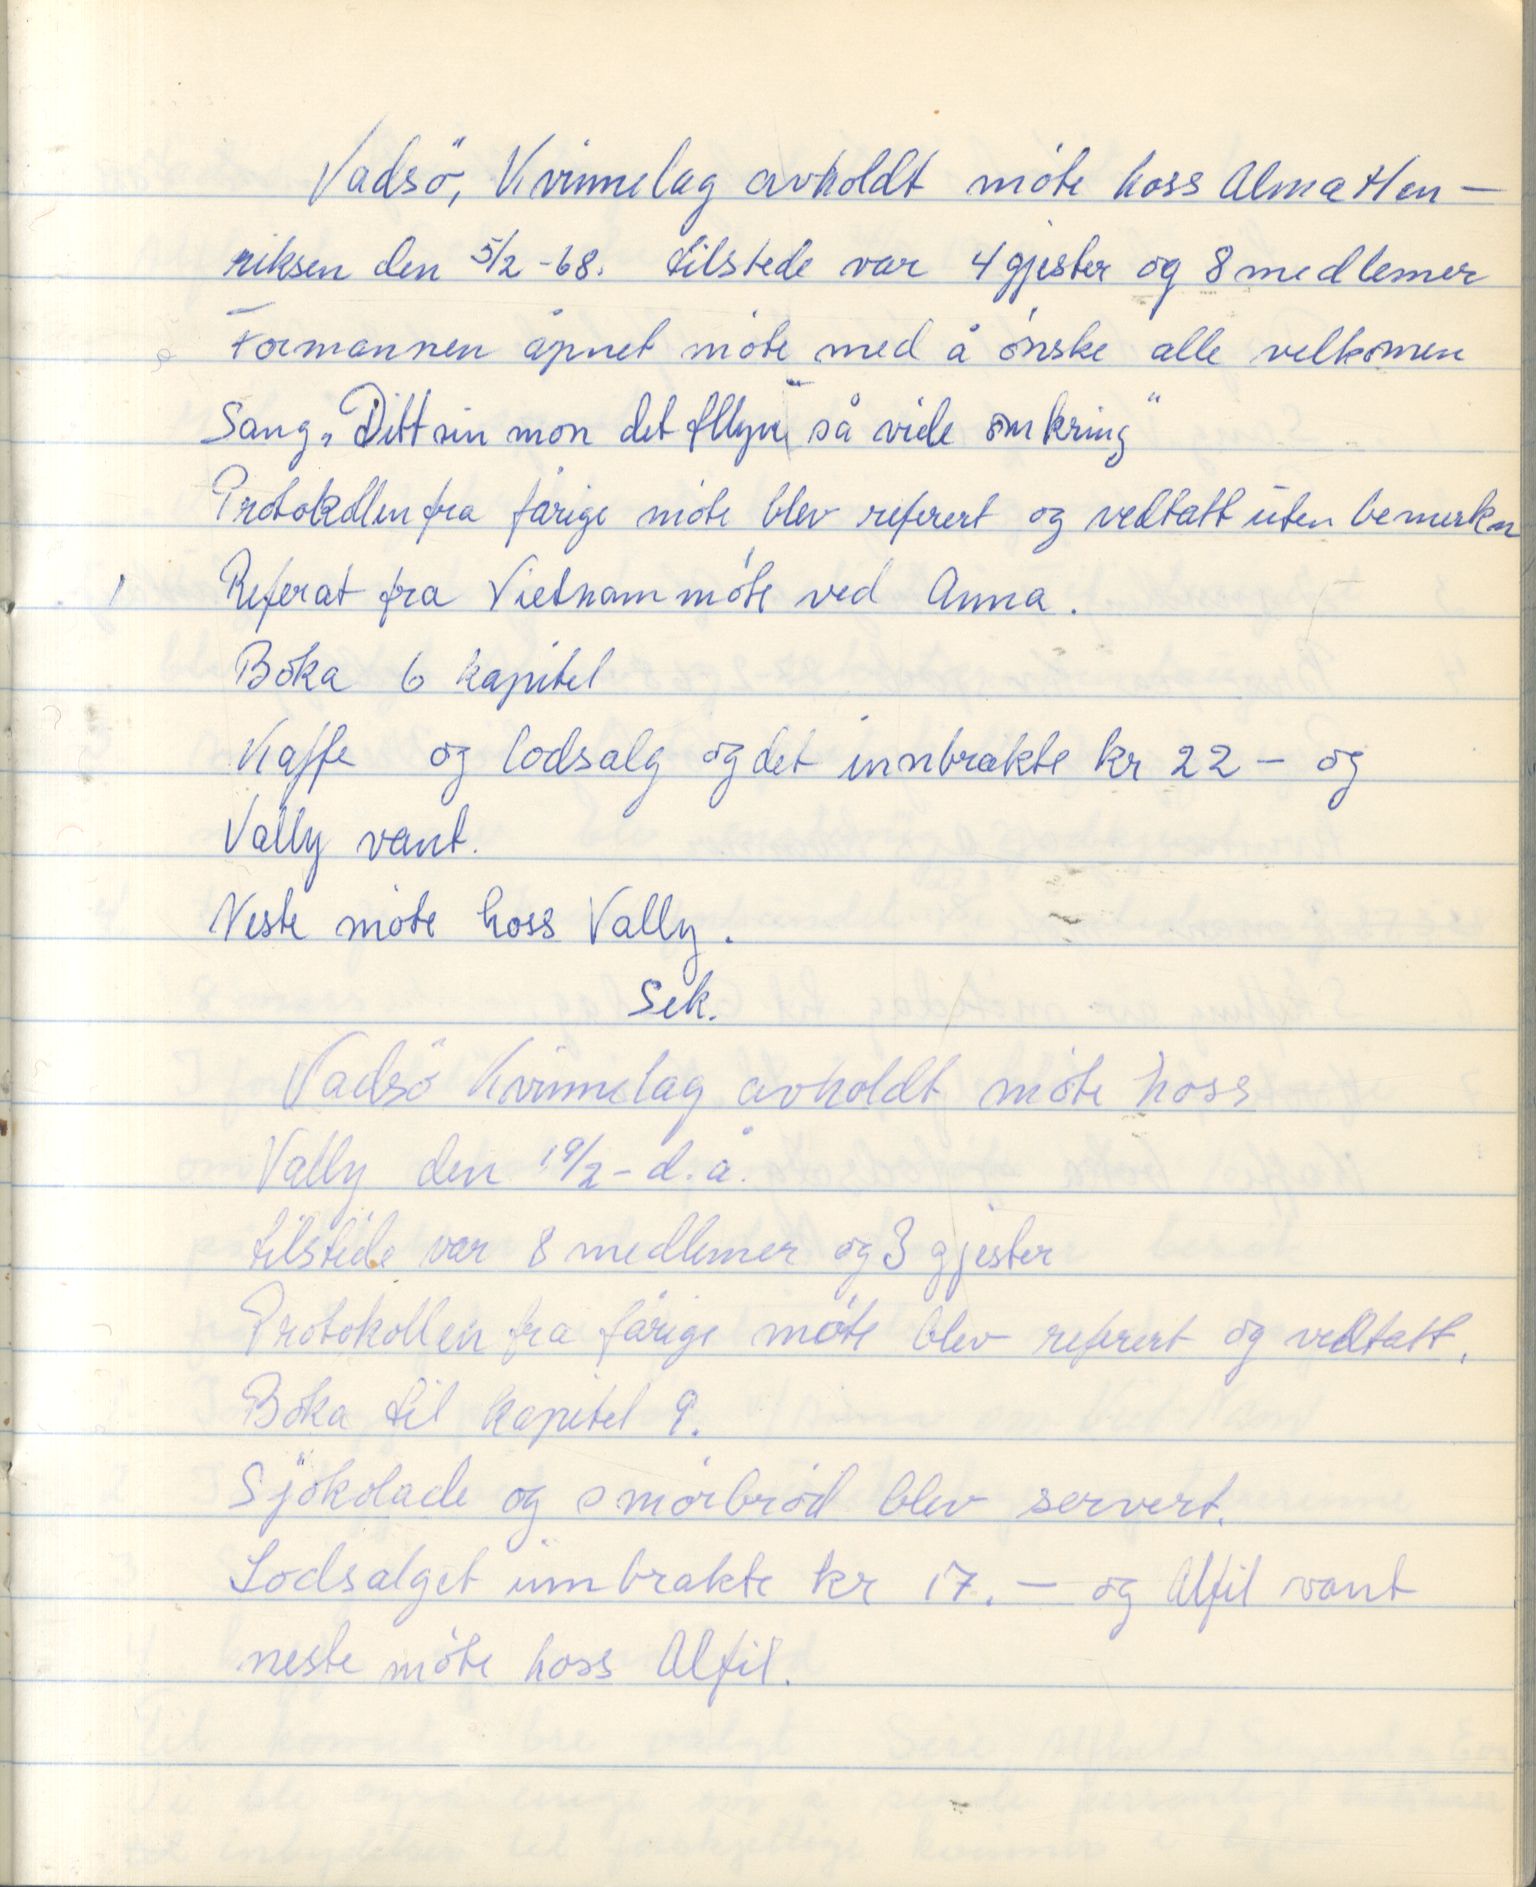 Vadsö, Kvinnelag avholdt möte hoss Alma Hen-
riksen den 5/2 -68. tilstede var 4 gjester og 8 medlemer
Formannen åpnet möte med å önske alle velkomen
Sang „Ditt sin mon det flyve så vide omkring"
Protokollen fra fårige möte blev referert og vedtatt uten bemerkn
1 Referat fra Vietnam möte ved Anna.
Boka 6 kapitel
Kaffe og lodsalg og det innbrakte kr 22 - og
Vally vant.
Neste möte hoss Vally.
Sek.
Vadsö Kvinnelag avholdt möte hoss
Vally den 19/2 - d.å.
tilstede var 8 medlemer og 3 gjester
Protokollen fra fårige möte blev referert og vedtatt.
Boka til kapitel 9.
Sjökolade og smörbröd blev servert.
Lodsalget innbrakte kr 17. - og Alfil vant
neste möte hoss Alfil.